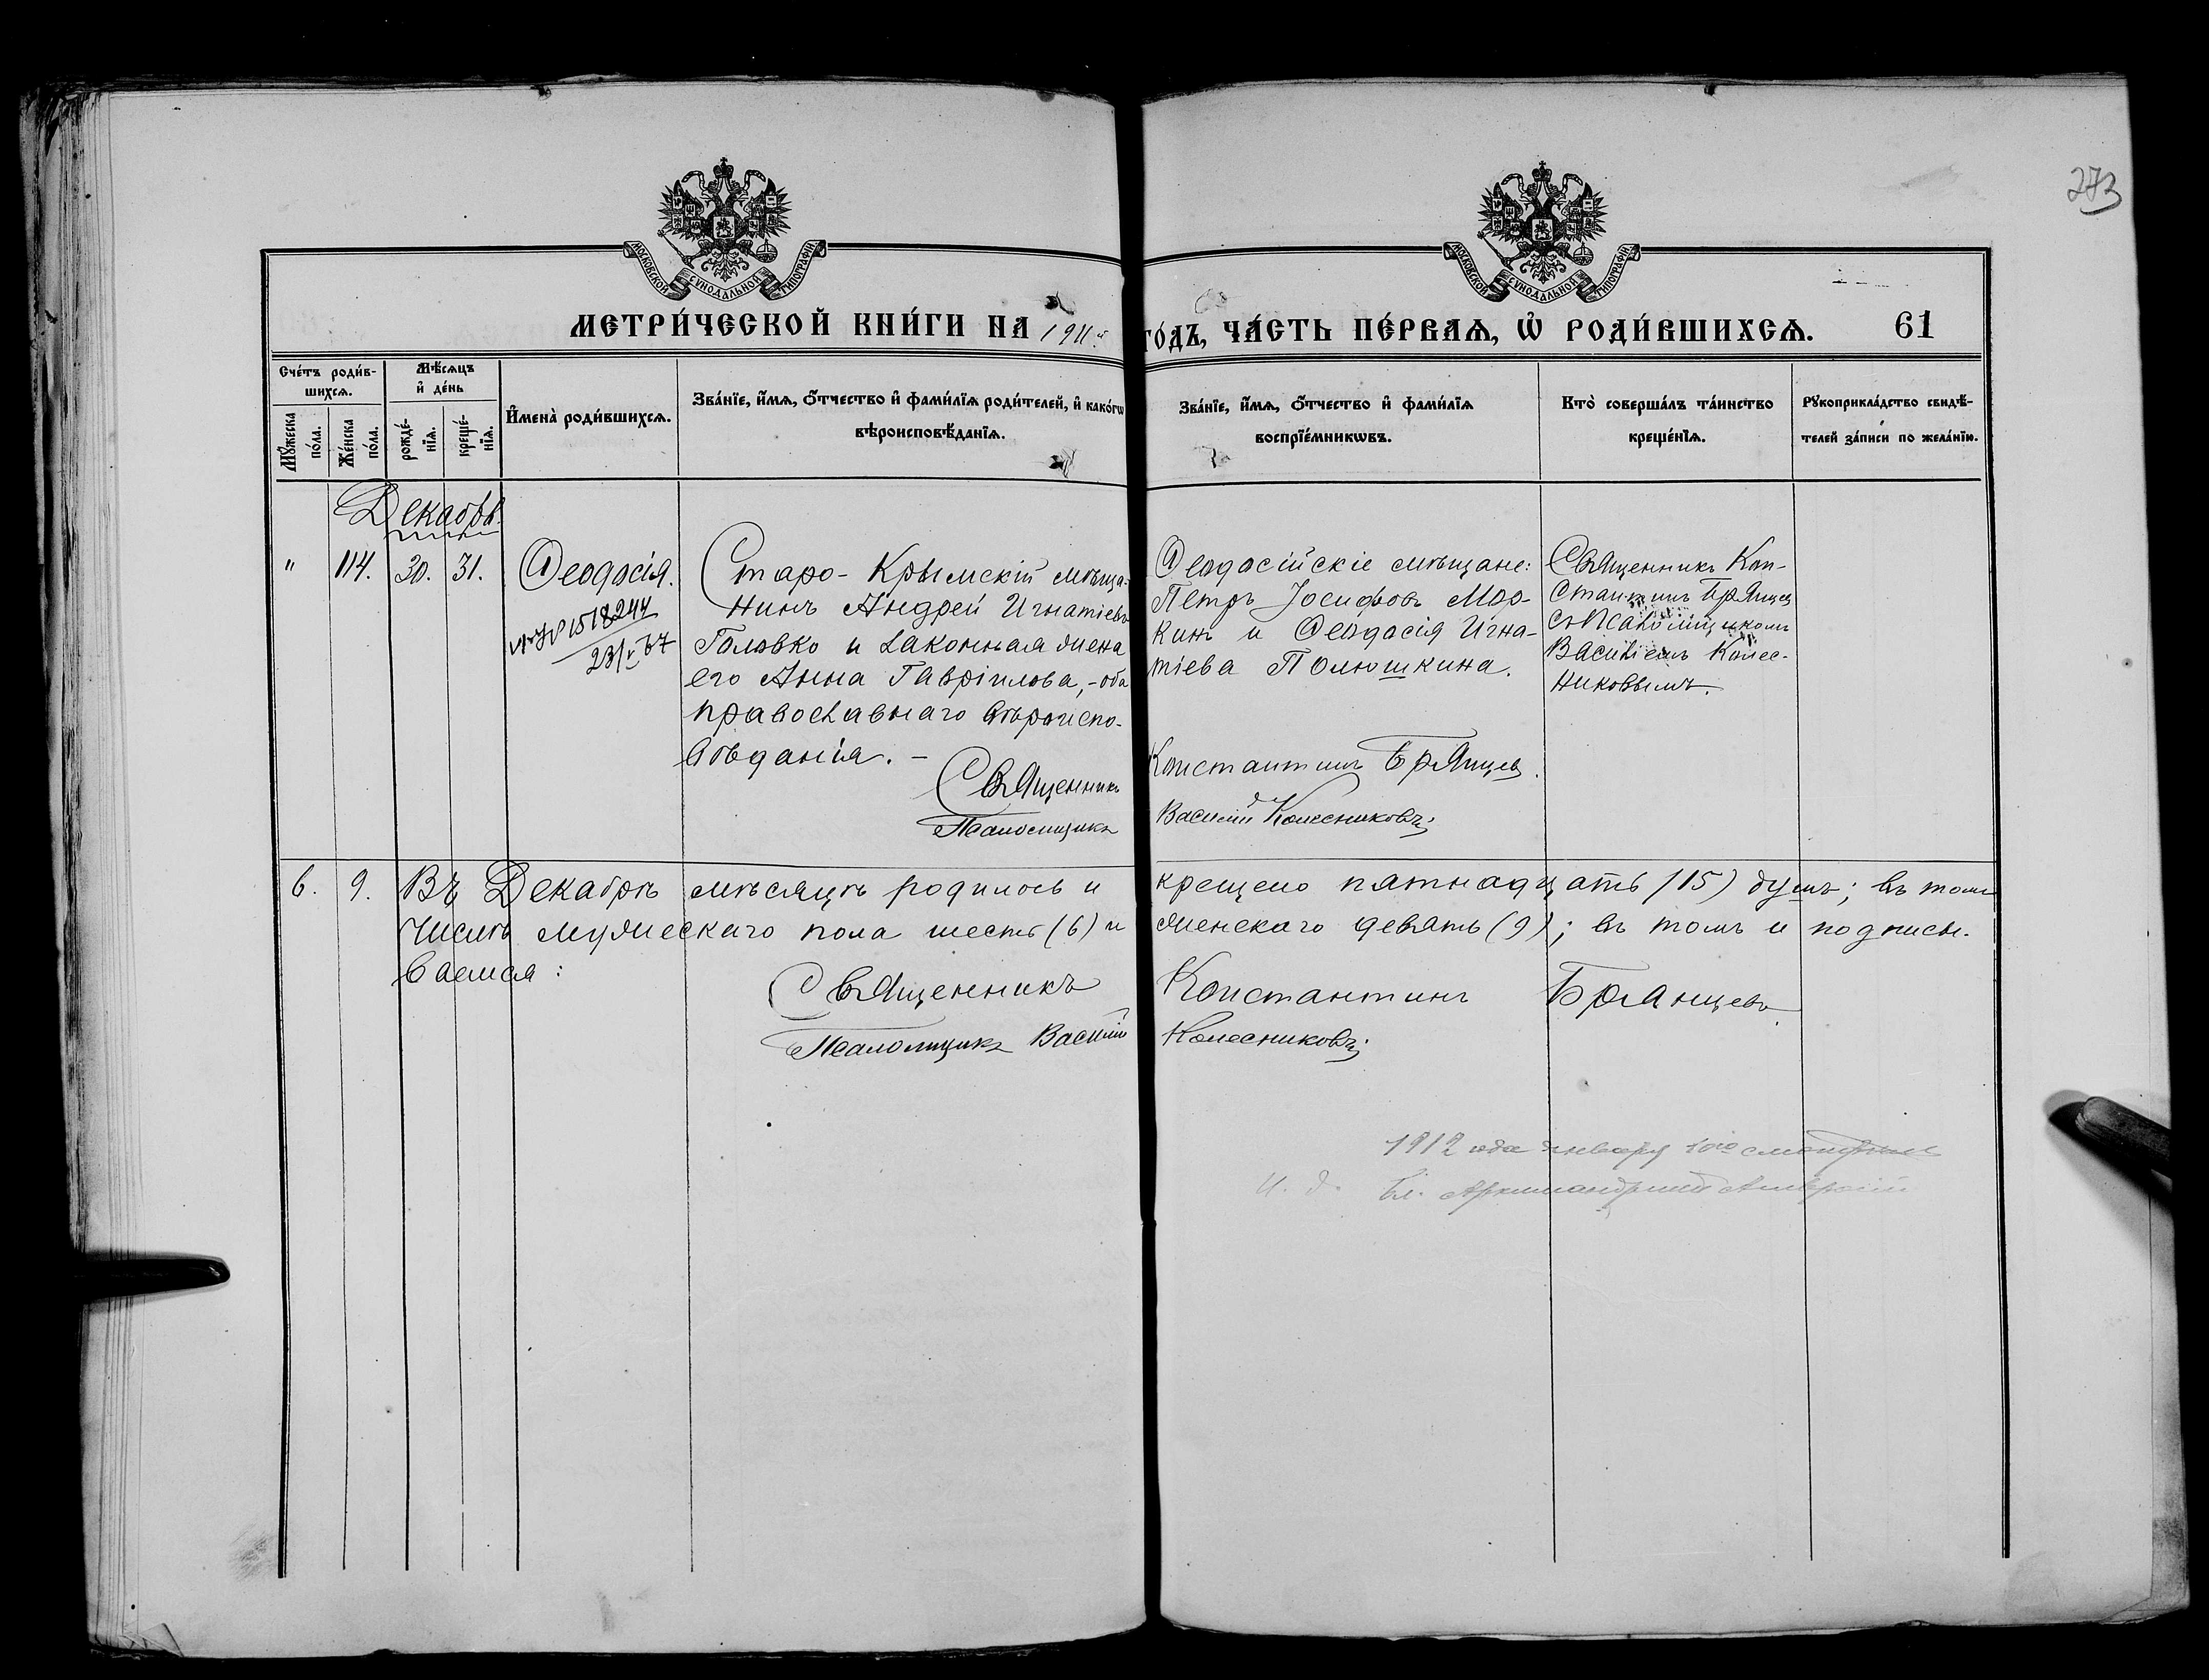 273
МОСКОВСКОЙ СѴНОДАЛЬНОЙ ТИПОГРАФІИ
МОСКОВСКОЙ СѴНОДАЛЬНОЙ ТИПОГРАФІИ
МЕТРИ́ЧЕСКОЙ КНИ́ГИ НА 1911й ГО́ДЪ, ЧА́СТЬ ПЕ́РВАѦ, Ѡ҆ РОДИ́ВШИХСѦ. 61
Сче́тъ роди́в-
шихсѧ.
Мꙋ́жеска по́ла.
Же́нска по́ла.
Мѣ́сѧцъ
и҆ де́нь
рожде́-
нїѧ.
креще́-
нїѧ.
И҆мена̀ роди́вшихсѧ.
Зва́нїе, и҆́мѧ, ѻ҆́тчество и҆ фами́лїѧ роди́телей, и҆ како́гѡ
вѣроисповѣ́данїѧ.
Зва́нїе, и҆́мѧ, ѻ҆́тчество и҆ фами́лїѧ
воспрїе́мникѡвъ.
Кто̀ соверша́лъ та́инство
креще́нїѧ.
Рꙋкоприкла́дство свидѣ́-
телей за́писи по жела́нїю.
Декабрь.
" 114. 30. 31. Ѳеодосія.
15 18244
23/V 67
Старо-Крымскій мѣща-
нинъ Андрей Игнатіевъ
Головко и законная жена
его Анна Гавріилова,-оба
православнаго вѣроиспо-
вѣданія. -
Священникъ
Псаломщикъ
Ѳеодосійскіе мѣщане:
Петръ Іосифовъ Мор-
кинъ и Ѳеодосія Игна-
тіева Полюшкина.
Константинъ Брянцев.
Василій Колесниковъ
Священникъ Кон-
стантинъ Брянцев
съ Псаломщикомъ
Василіемъ Колес-
никовымъ.
6. 9. Въ Декабрѣ мѣсяцѣ родилось и крещено пятнадцать (15) душъ; въ томъ
числѣ мужескаго пола шесть (6) и женскаго девять (9); въ томъ и подписы-
ваемся:
Священникъ Константинъ Брянцевъ.
Псаломщикъ Василій Колесниковъ
1912 года января 10го
И. д. Бл. Архимандритъ